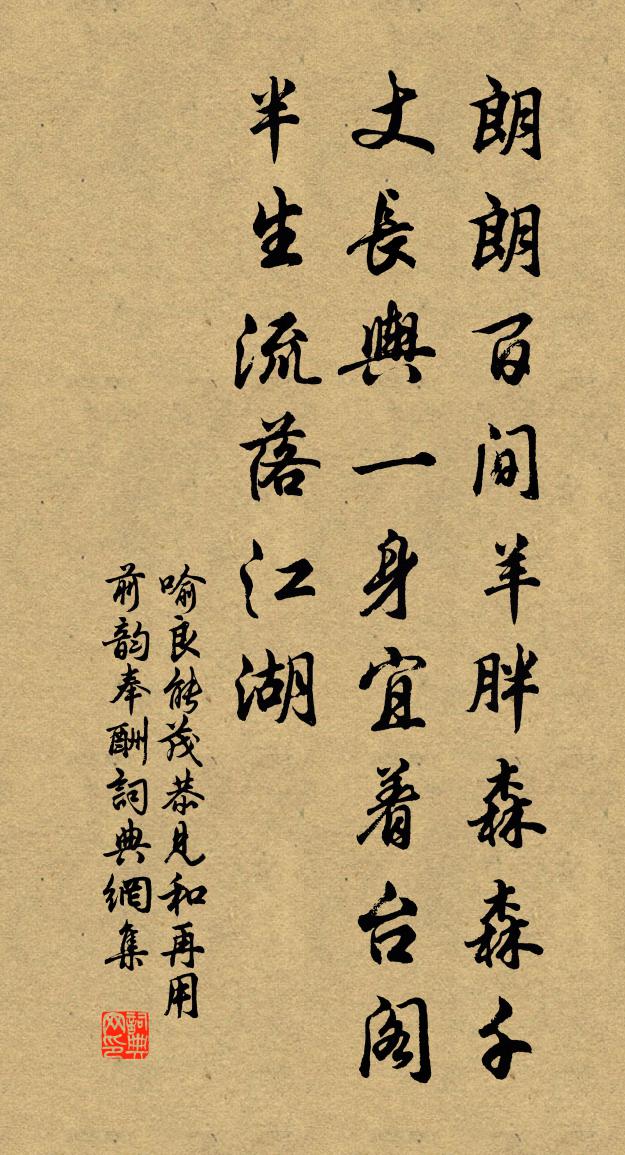 朗朗百间羊胖森森千
丈長輿一身宜着台阁
半生流落江湖
喻良能茂恭見和再用
前韵奉酬詞典網集
詞典网印